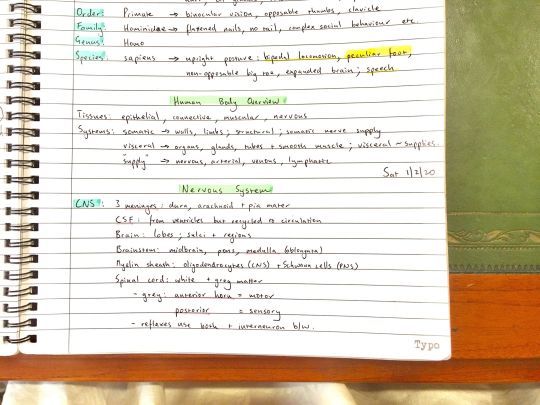 Order: Primate → binocular vision, opposable thumbs, clavicle
Family: Hominidae → flattened nails, no tail, complex social behaviour etc.
Genus: Homo
Species: sapiens → upright posture: bipedal locomotion, peculiar foot,
non-opposable big toe, expanded brain; speech
Human Body Overview
Tissues: epithelial, connective, muscular, nervous
Systems: somatic → walls, limbs; structural; somatic nerve supply
visceral → organs, glands, tubes + smooth muscle; visceral ~ supplies
"supply" → nervous, arterial, venous, lymphatic
Sat 1/2/20
Nervous System
CNS: 3 meninges: dura, arachnoid + pia mater
CSF: from ventricles but recycled to circulation
Brain: lobes; sulci + regions
Brainstem: midbrain, pons, medulla (oblongata)
Myelin sheath: oligodendrocytes (CNS) + Schwann cells (PNS)
Spinal cord: white + grey matter
- grey: anterior horn = motor
posterior = sensory
- reflexes use both + interneuron b/w.
Typo